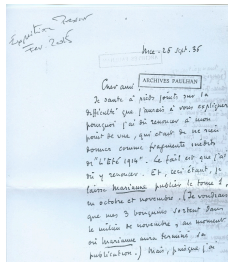 Exposition
Fev. 2005
Nice - 26 sept. 36
ARCHIVES PAULHAN
Cher ami
Je saute à pieds joints sur la
difficulté que j'aurais à vous expliquer
pourquoi j'ai dû renoncer à mon
point de vue, qui était de ne rien
donner comme fragments inédits
de "L'ÉTÉ 1914". Le fait est que j'ai
dû y renoncer. Et, ceci étant, je
laisse Marianne publier le tome 1,
en octobre et novembre. (Je voudrais
que mes 3 bouquins sortent dans
le milieu de novembre, au moment
où Marianne aura terminé sa
publication.) Mais, puisque j'ai